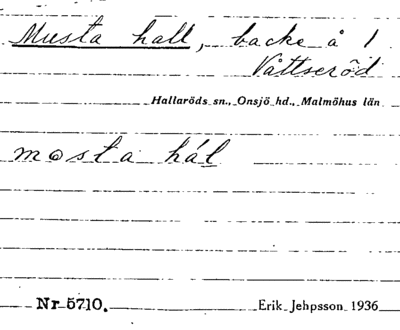 Musta hall, backe å 1
Vattseröd
Hallaröds sn., Onsjö hd., Malmöhus län
mosta hál
Nr 5710.
Erik Jehpsson 1936